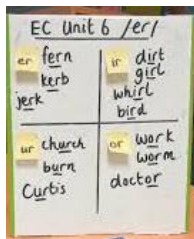 EC Unit 6 /er/
er fern
kerb
jerk
ir dirt
girl
whirl
bird
ur church
burn
Curtis
or work
worm
doctor